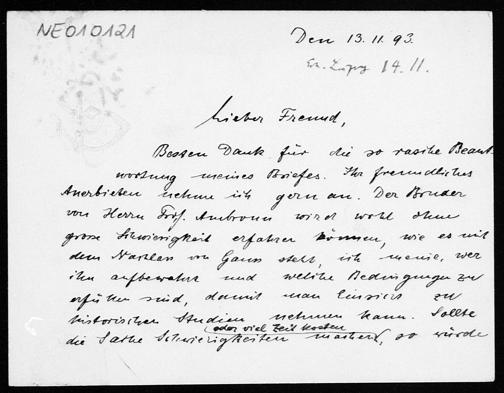 NE010121
Den 13. 11. 93.
14. 11.
Lieber Freund,
Besten Dank für die so rasche Beant-
wortung meines Briefes. Ihr freundliches
Anerbieten nehme ich gern an. Der Bruder
von Herrn Prof. Ambronn wird wohl ohne
grosse Schwierigkeit erfahren können, wie es mit
dem Nachlass von Gauss steht, ich meine, wer
ihn aufbewahrt und welche Bedingungen zu
erfüllen sind, damit man Einsicht zu
historischen Studien nehmen kann. Sollte
(oder viel Zeit kosten)
die Sache Schwierigkeiten machen, so würde